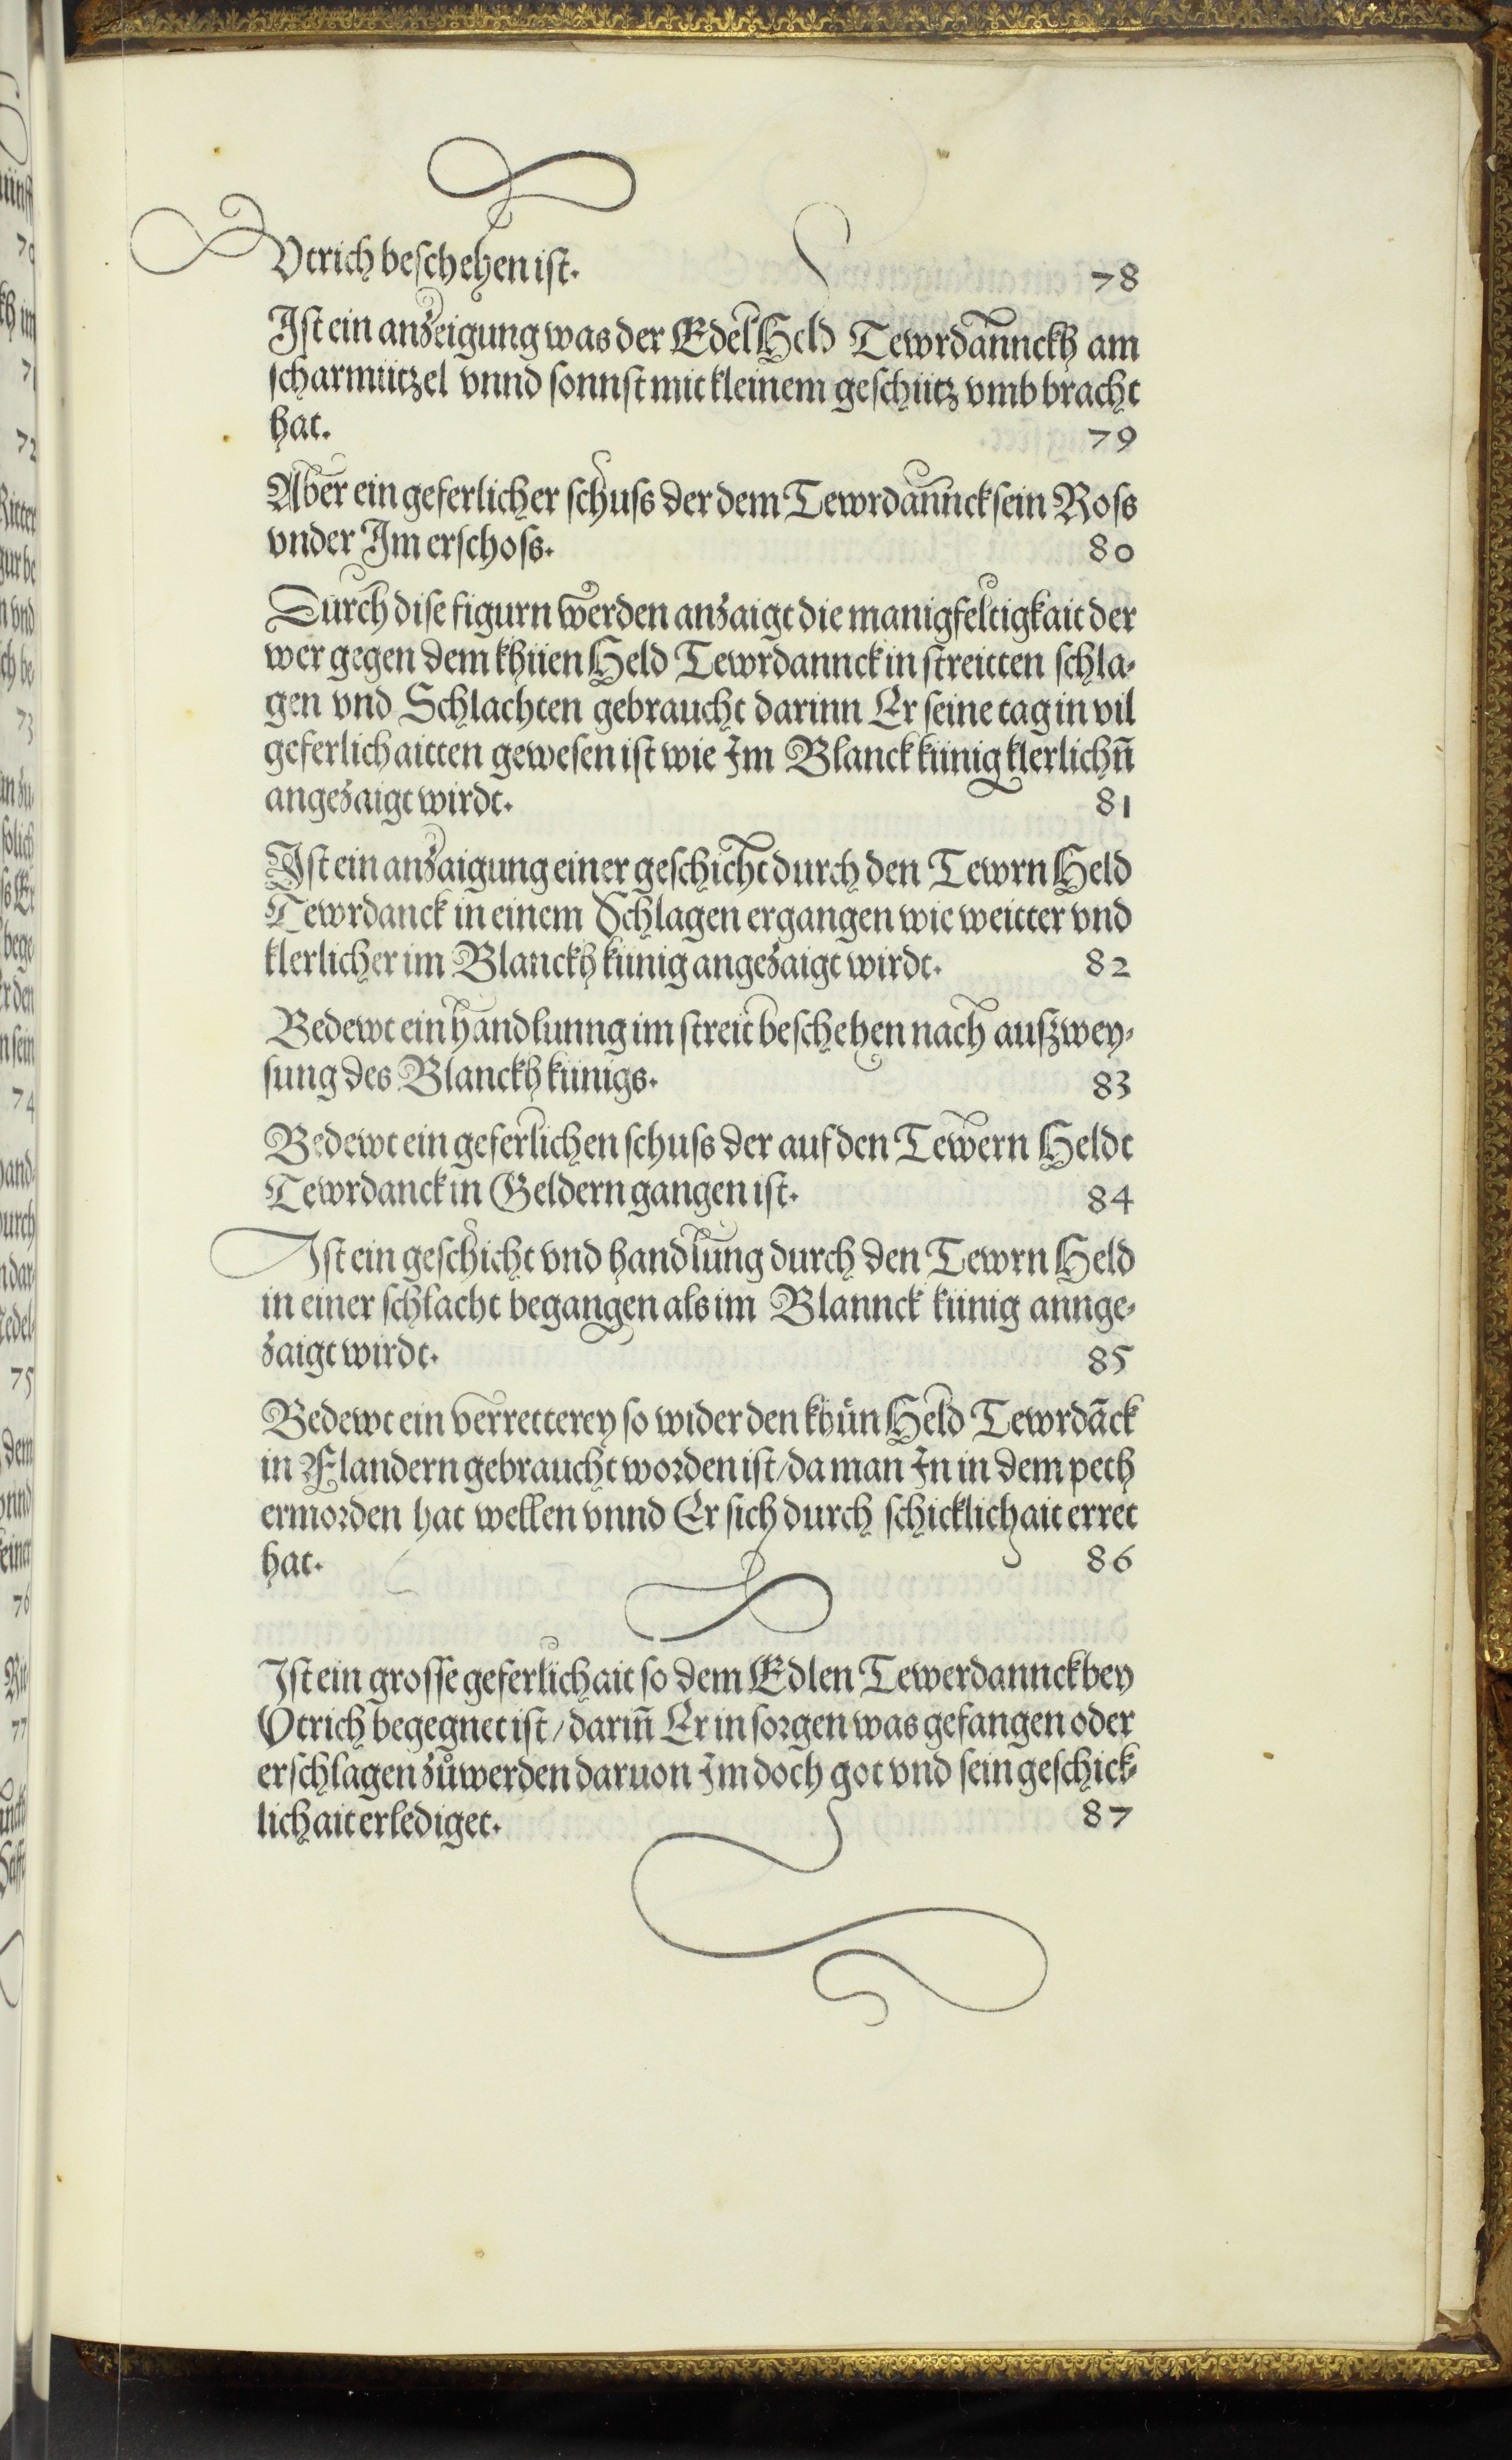 Vtrich beschehen ist. 78
Ist ein anzeigung was der Edel Held Tewrdannckh am
scharmützel vnnd sonnst mit kleinem geschütz vmb bracht
hat. 79
Aber ein geferlicher schuss der dem Tewrdannck sein Ross
vnder Im erschoss. 80
Durch dise figurn werden anzaigt die manigfeltigkait der
wer gegen dem khüen Held Tewrdannck in streitten schla-
gen vnd Schlachten gebraucht darinn Er seine tag in vil
geferlichaitten gewesen ist wie Im Blanck künig klerlichn̄
angezaigt wirdt. 81
Ist ein anzaigung einer geschicht durch den Tewrn Held
Tewrdanck in einem Schlagen ergangen wie weitter vnd
klerlicher im Blanckh künig angezaigt wirdt. 82
Bedewt ein handlunng im streit beschehen nach auszwey-
sung des Blanckh künigs. 83
Bedewt ein geferlichen schuss der auf den Tewern Heldt
Tewrdanck in Geldern gangen ist. 84
Ist ein geschicht vnd handlung durch den Tewrn Held
in einer schlacht begangen als im Blannck künig annge-
zaigt wirdt. 85
Bedewt ein verretterey so wider den khün Held Tewrdāck
in Flandern gebraucht worden ist/da man In in dem peth
ermorden hat wellen vnnd Er sich durch schicklichait erret
hat. 86
Ist ein grosse geferlichait so dem Edlen Tewerdannck bey
Vtrich begegnet ist/darin̄ Er in sorgen was gefangen oder
erschlagen zůwerden daruon Im doch got vnd sein geschick-
lichait erlediget. 87